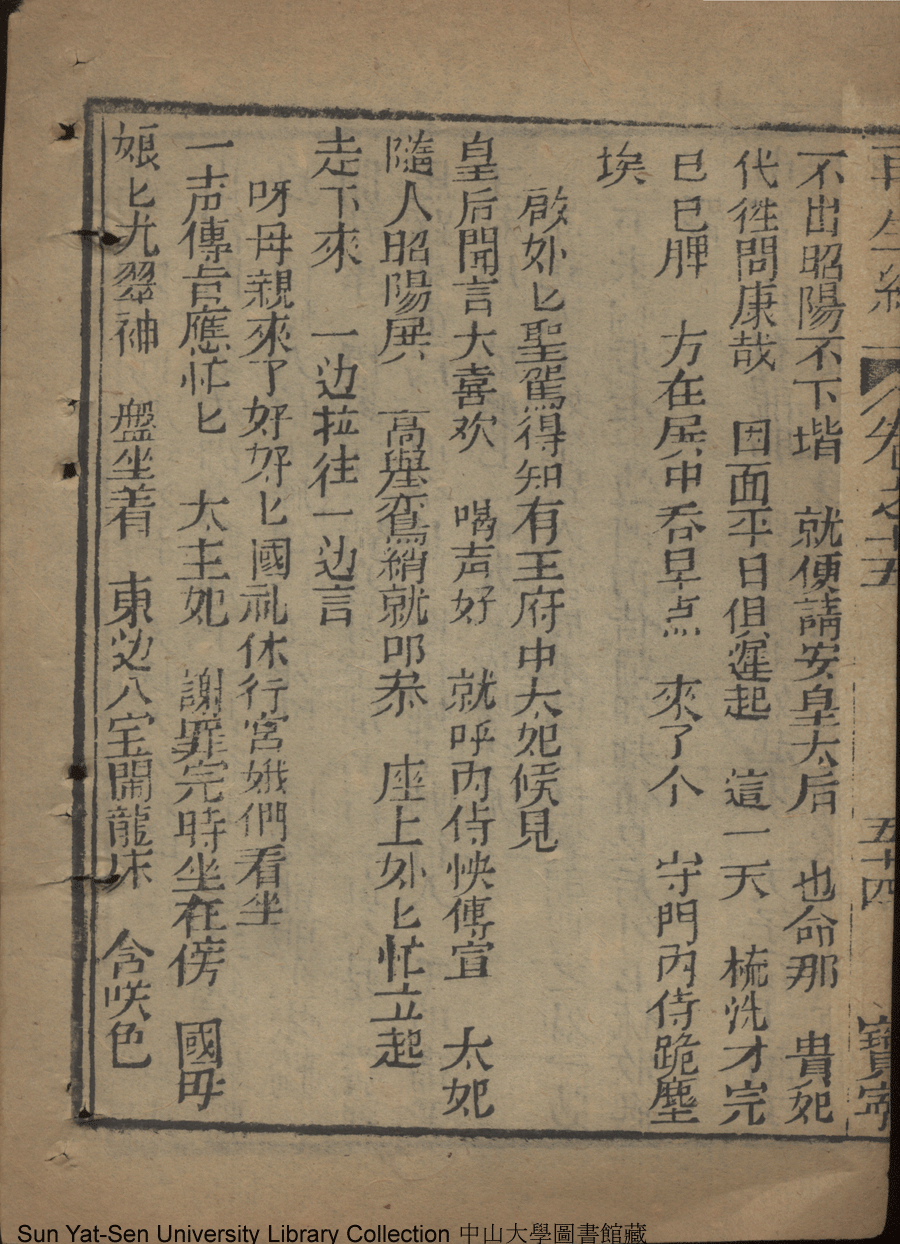 再生緣 卷之十五 五十四 寶寧
不出昭陽不下堦 就便請安皇太后 也命那 貴妃
代徃問康哉 因面平日俱遲起 這一天 梳洗才完
已巳牌 方在展中吞早点 來了个 守門內侍跪塵
埃
啟外匕聖駕得知有王府中太妃候見
皇后聞言大喜欢 喝声好 就呼內侍怏傳宣 太妃
隨人昭陽展 高舉鸞綃就叩恭 座上外匕忙立起
走下來 一边拉住一边言
呀母親來了好好匕國礼休行宮娥們看坐
一声傳旨應忙匕 太主妃 謝罪完時坐在傍 國毋
娘匕尤翠神 盤坐着 東边八宝開龍床 含咲色
Sun Yat-Sen University Library Collection 中山大學圖書館藏